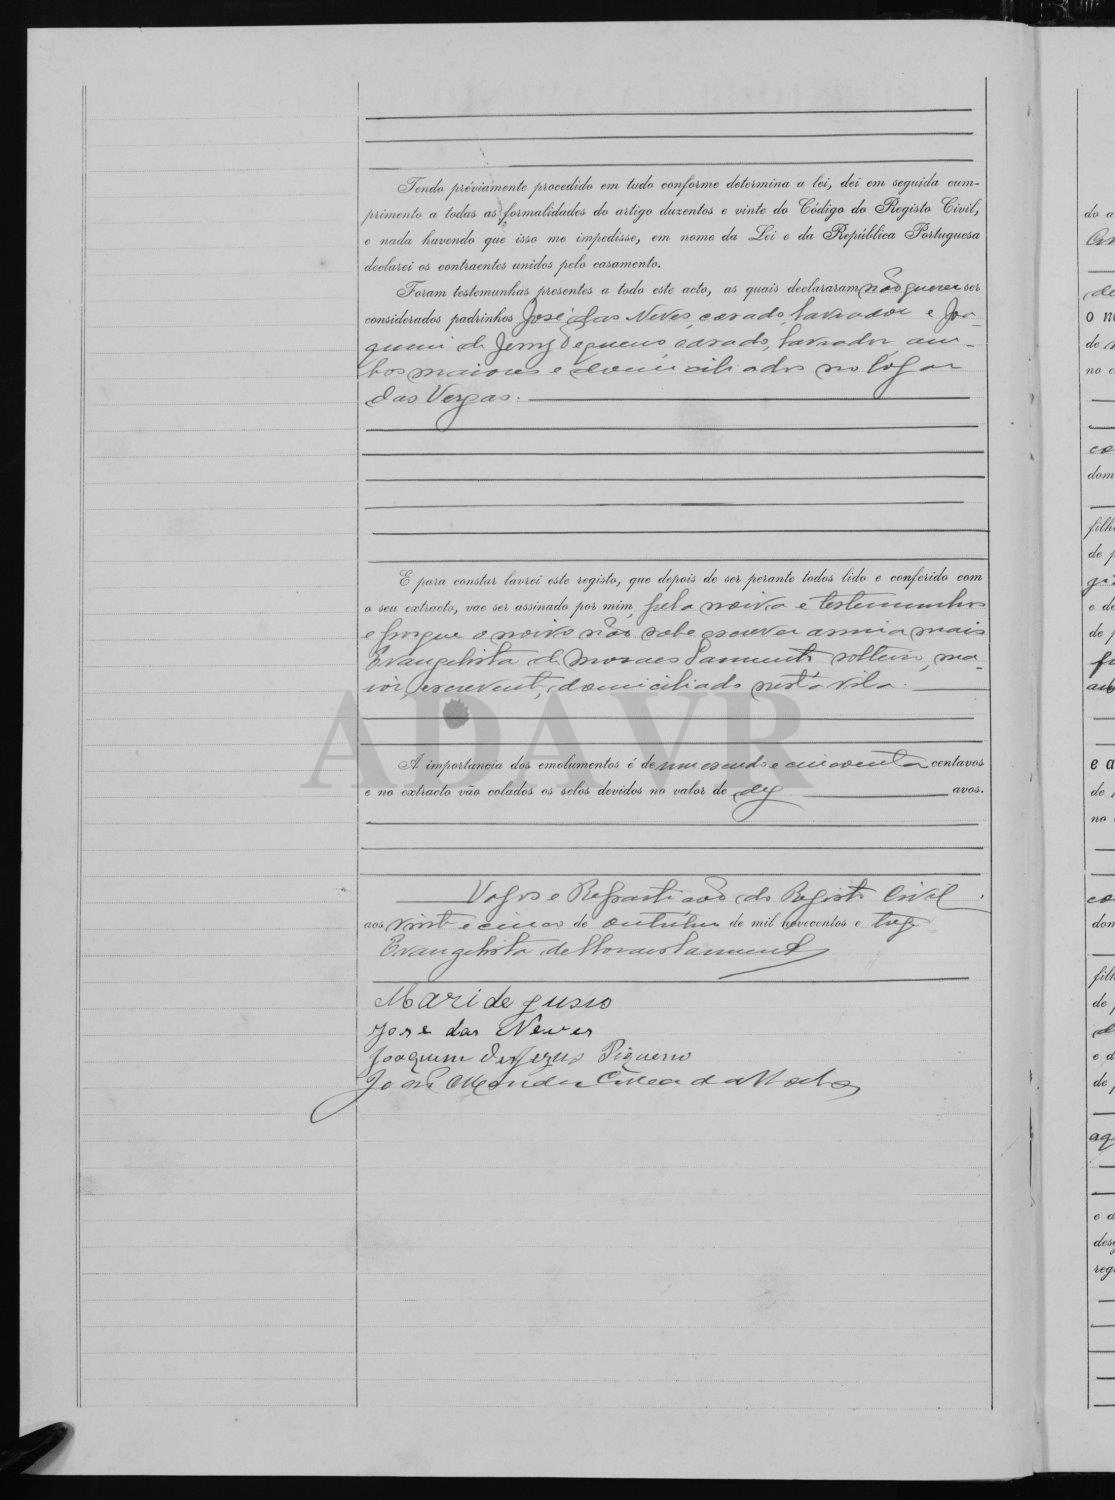 Tendo préviamente procedido em tudo conforme determina a lei, dei em seguida cum-
primento a todas as formalidades do artigo duzentos e vinte do Código do Registo Civil,
e nada havendo que isso me impedisse, em nome da Lei e da República Portuguesa
declarei os contraentes unidos pelo casamento.
Foram testemunhas presentes a todo este acto, as quais declararam não querer ser
considerados padrinhos José das Neves, casado, lavrador e Joa-
quim de Jesus Pequeno, casado, lavrador, am-
bos maiores e domiciliados no logar
das Vergas.
E para constar lavrei este registo, que depois de ser perante todos lido e conferido com
o seu extracto, vae ser assinado por mim, pela noiva e testemunhas
e porque o noivo não sabe escrever assina mais
Evangelista de Moraes Sarmento solteiro, ma-
ior, escrevente, domiciliado nesta vila.
ADAVR
A importancia dos emolumentos é de um escudo e cincoenta centavos
e no extracto vão colados os selos devidos no valor de dez avos.
Vagos e Repartição do Registo Civil
aos vinte e cinco de outubro de mil novecentos e treze
Evangelista de Moraes Sarmento
Mari de gusus
José das Neves
Joaquim de Jezus Piqueno
João Mendes Correa da Rocha
do a
de
o n
de
no
co
dom
filh
de p
e de
de p
e a
de
no
co
dom
filh
de p
e d
de p
aq
e d
des
reg